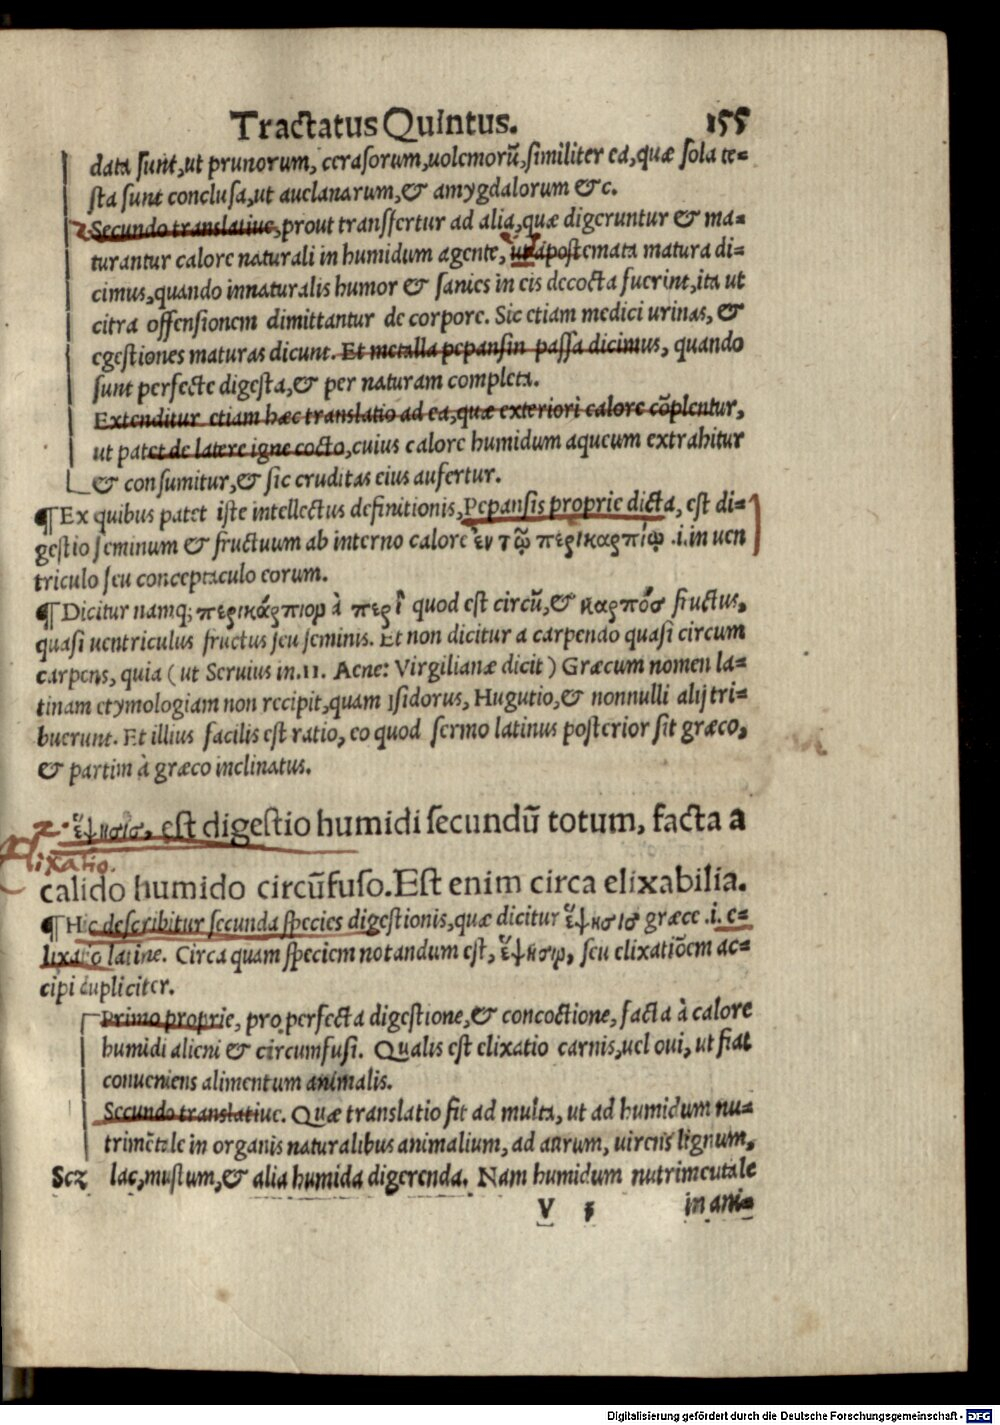 Tractatus Quintus. 155
data sunt, ut prunorum, cerasorum, uolemorũ, similiter ea, quæ sola te=
sta sunt conclusa, ut auelanarum, & amygdalorum &c.
Secundo translatiue, prout transfertur ad alia, quæ digeruntur & ma=
turantur calore naturali in humidum agente, ut apostemata matura di=
cimus, quando innaturalis humor & sanies in eis decocta fuerint, ita ut
citra offensionem dimittantur de corpore. Sic etiam medici urinas, &
egestiones maturas dicunt. Et metalla pepansin passa dicimus, quando
sunt perfecte digesta, & per naturam completa.
Extenditur etiam hæc translatio ad ea, quæ exteriori calore cõplentur,
ut patet de latere igne cocto, cuius calore humidum aqueum extrahitur
& consumitur, & sic cruditas eius aufertur.
¶ Ex quibus patet iste intellectus definitionis, Pepansis proprie dicta, est di=
gestio seminum & fructuum ab interno calore ἐν τῷ περικαρπίῳ .i. in uen
triculo seu conceptaculo eorum.
¶ Dicitur namq; περικάρπιον à περὶ quod est circũ, & καρπὸσ fructus,
quasi uentriculus fructus seu seminis. Et non dicitur a carpendo quasi circum
carpens, quia ( ut Seruius in .11. Aene: Virgilianæ dicit ) Græcum nomen la=
tinam etymologiam non recipit, quam Isidorus, Hugutio, & nonnulli alij tri=
buerunt. Et illius facilis est ratio, eo quod sermo latinus posterior sit græco,
& partim à græco inclinatus.
2. ἕψησισ, est digestio humidi secundũ totum, facta a
Elixatio.
calido humido circũfuso. Est enim circa elixabilia.
¶ Hic describitur secunda species digestionis, quæ dicitur ἕψησισ græce .i. e=
lixatio latine. Circa quam speciem notandum est, ἕψησιν, seu elixatiõem ac=
cipi dupliciter.
Primo proprie, pro perfecta digestione, & concoctione, facta à calore
humidi alieni & circumfusi. Qualis est elixatio carnis, uel oui, ut fiat
conueniens alimentum animalis.
Secundo translatiue. Quæ translatio fit ad multa, ut ad humidum nu=
trimẽtale in organis naturalibus animalium, ad aurum, uirens lignum,
lac, mustum, & alia humida digerenda. Nam humidum nutrimentale
V in ani=
Digitalisierung gefördert durch die Deutsche Forschungsgemeinschaft - DFG